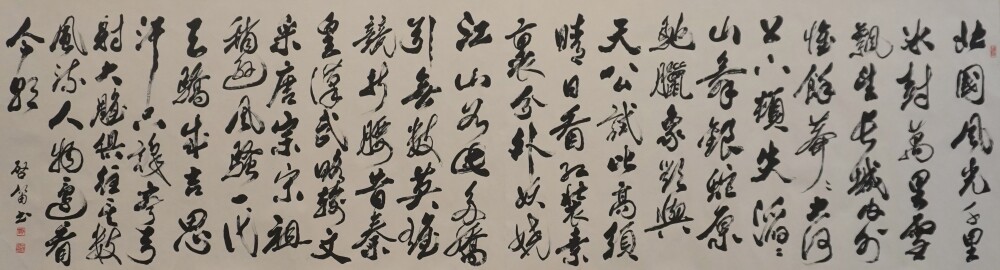 北國風光千里
冰封萬里雪
飄望長城內外
惟餘莽〻大河
上下頓失滔〻
山舞銀蛇原
馳臘象欲與
天公試比高須
晴日看紅裝素
裹分外妖嬈
江山如此多嬌
引無數英雄
競折腰昔秦
皇漢武略輸文
采唐宗宋祖
稍遜風騷一代
天驕成吉思
汗只識彎弓
射大雕俱往矣數
風流人物還看
今朝
书